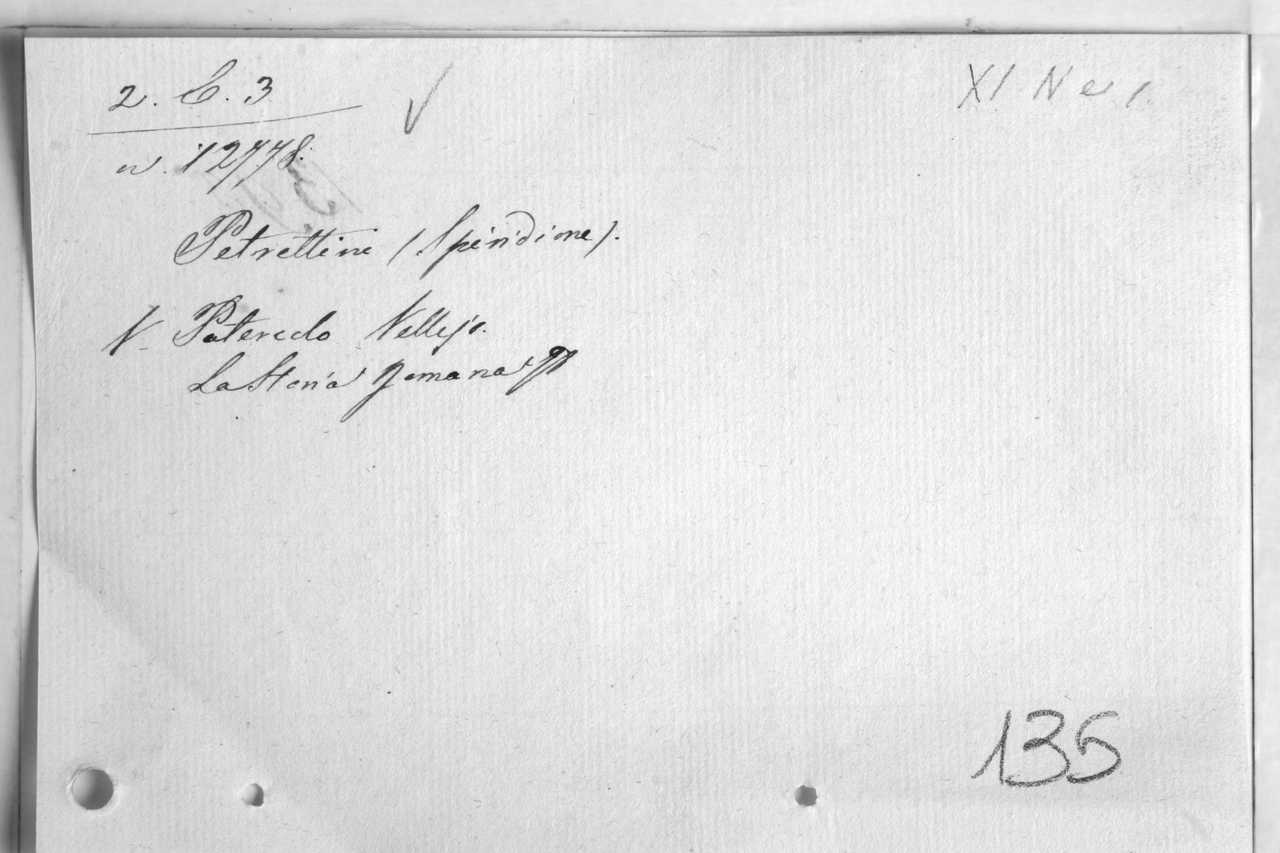 2. C. 3
XI Ne 1
n. 12778.
Petrettini (Spiridione).
V. Patercolo Vellejo.
La Storia Romana
135